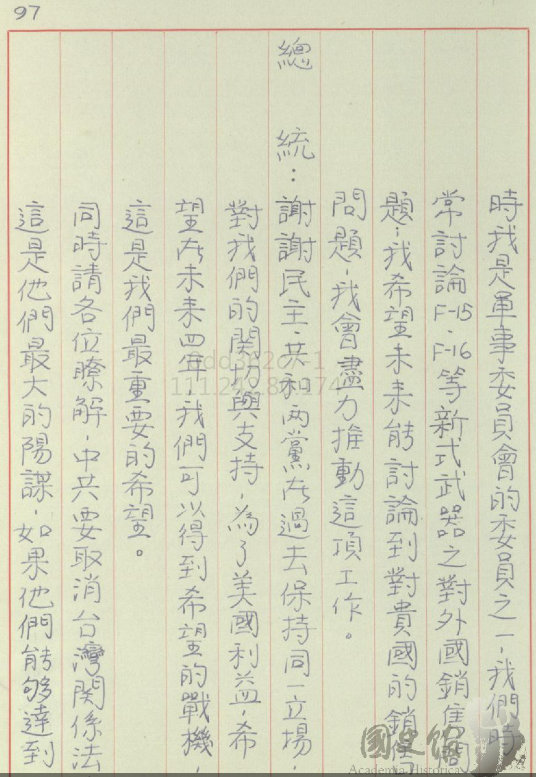 97
時我是軍事委員會的委員之一，我們時
常討論F-15、F-16等新式武器之對外國銷售問
題，我希望未來能討論到對貴國的銷售
問題，我會盡力推動這項工作。
總 統：謝謝民主、共和兩黨在過去保持同一立場，
對我們的関切與支持，為了美國利益，希
望在未來四年，我們可以得到希望的戰機，
這是我們最重要的希望。
同時請各位瞭解，中共要取消台灣関係法
這是他們最大的陽謀，如果他們能够達到
國史館
Academia Historica